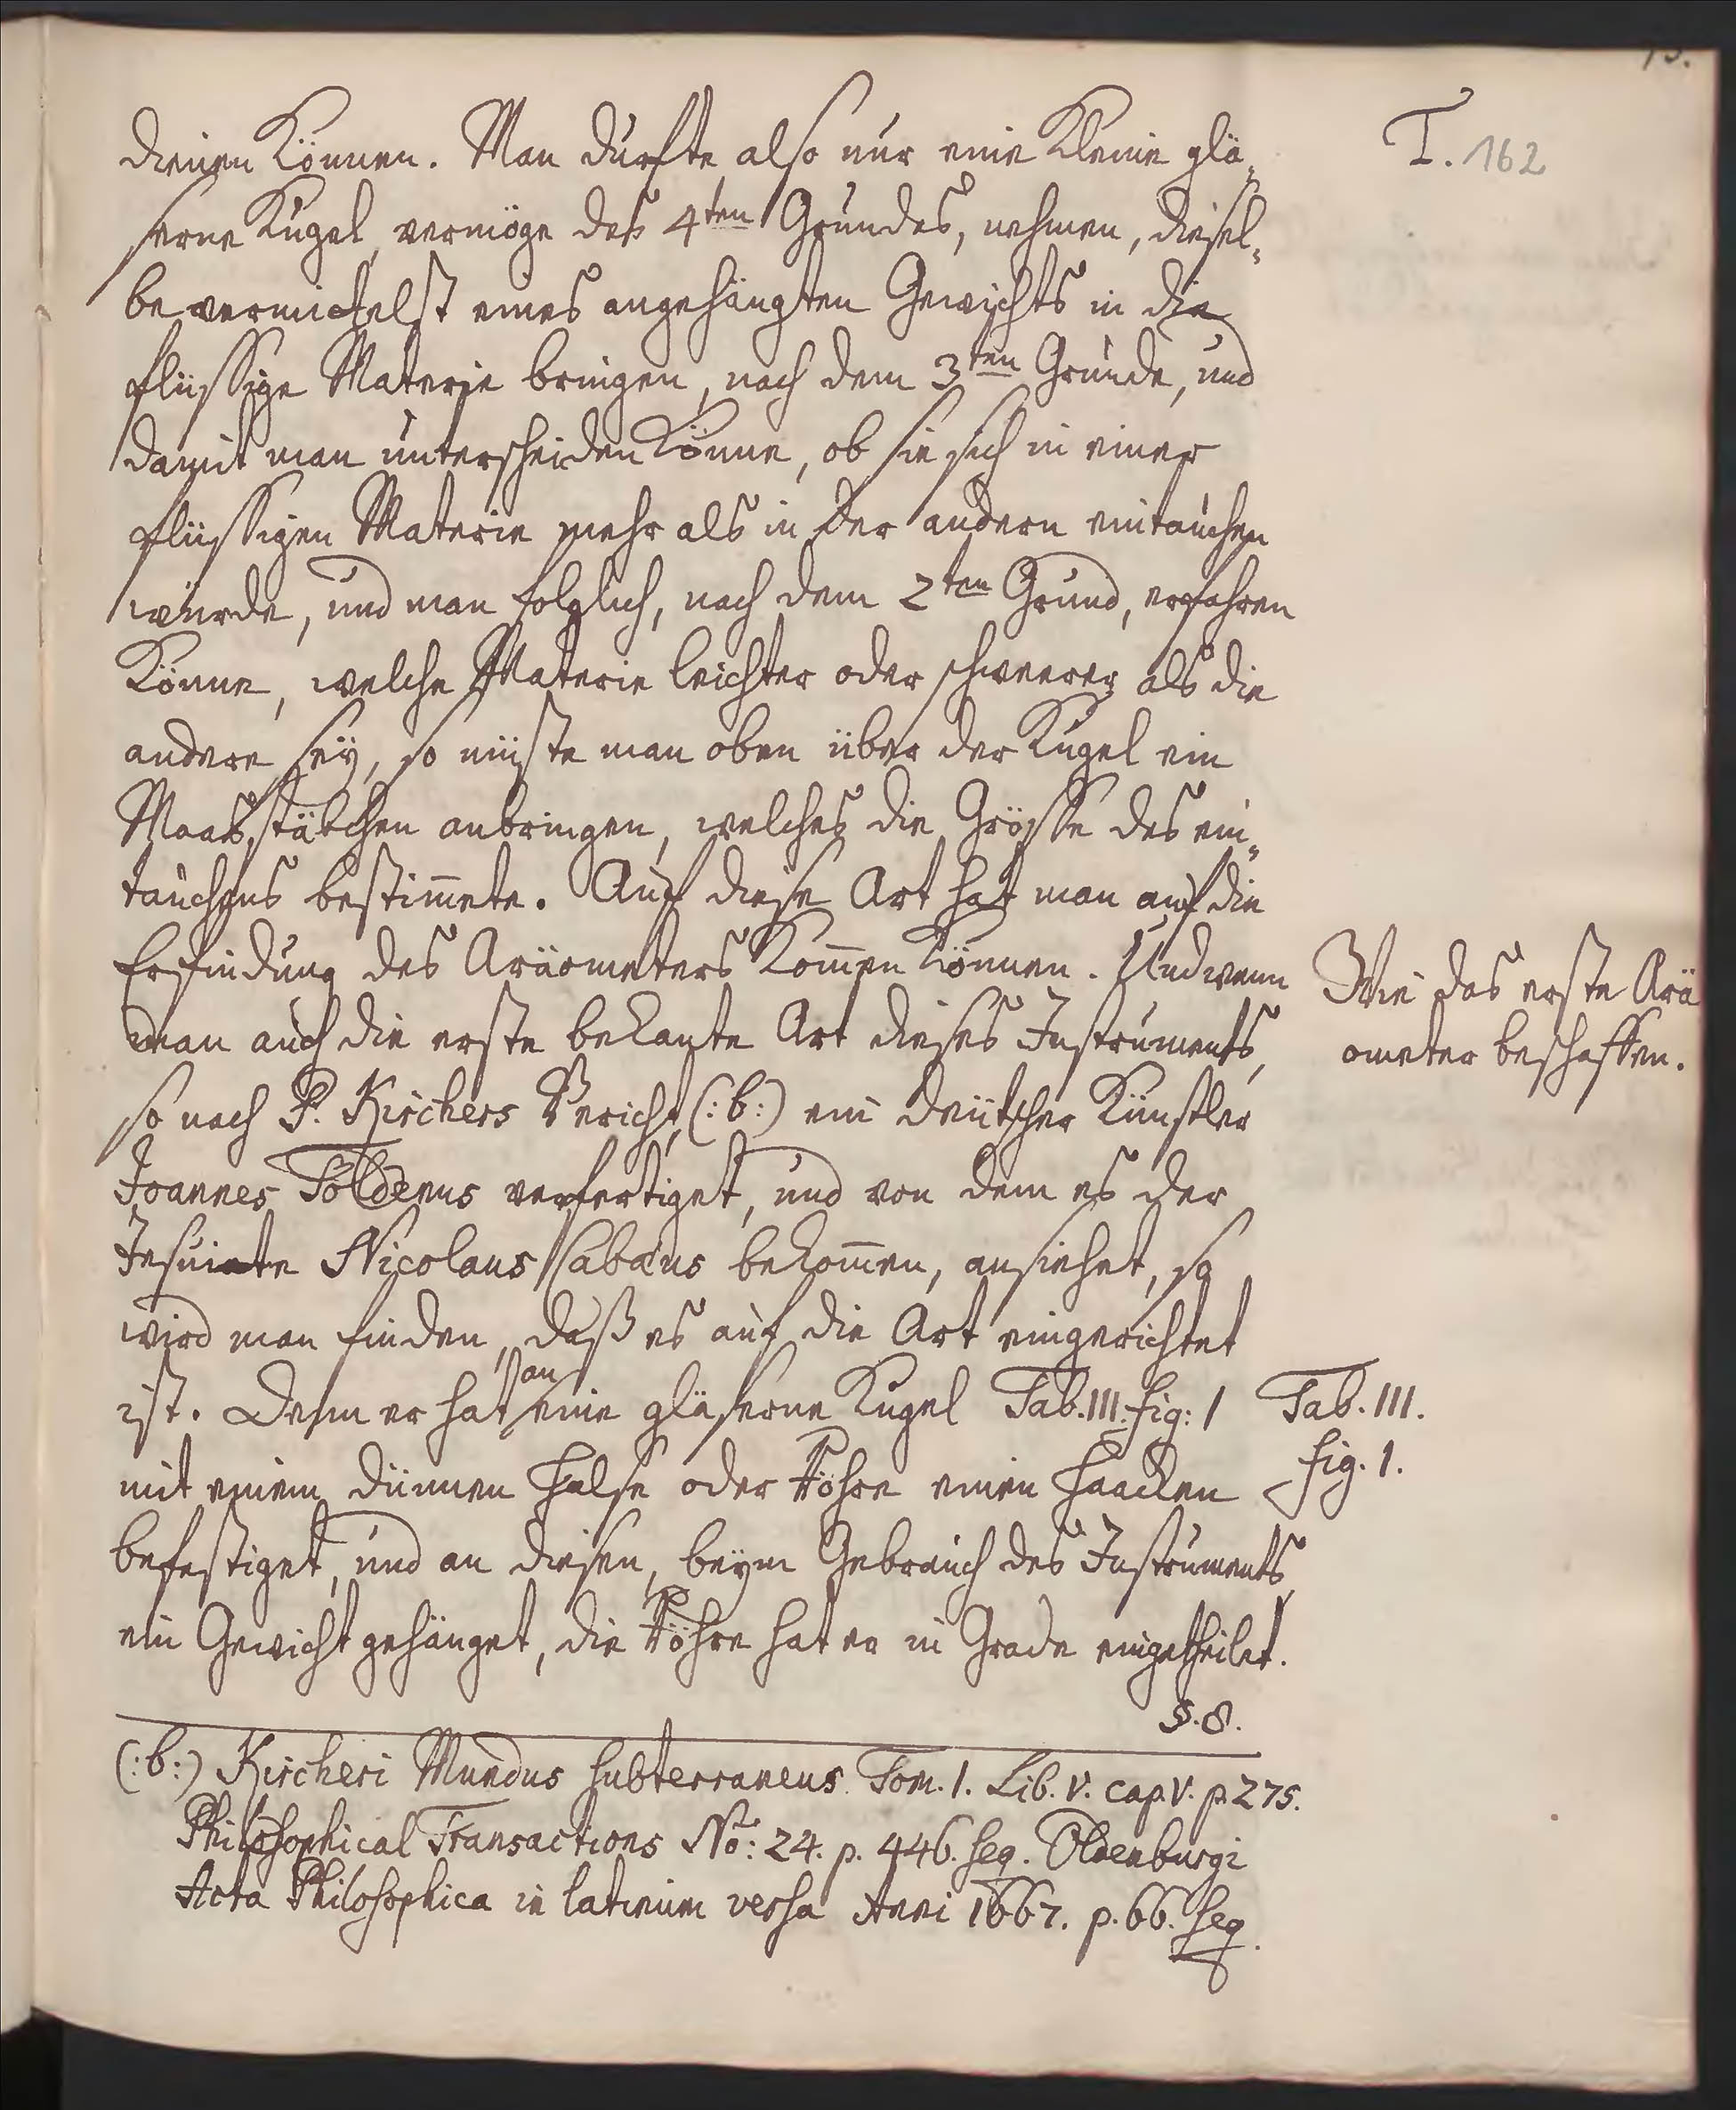 T. 162
dienen Können. Man durfte also nur eine Kleine glä„
serne Kugel, vermöge des 4ten Grundes, nehmen, diesel„
be vermittelst eines angehängten Gewichts in die
flüssige Materie bringen, nach dem 3ten Grunde, und
damit man unterscheiden Könne, ob sie sich in einer
flüssigen Materie mehr als in der andern eintauchen
würde, und man folglich, nach dem 2ten Grund, erfahren
Könne, welche Materie leichter oder schweerer als die
andere seÿ, so müste man oben über der Kugel ein
Maas,stäbchen anbringen, welches die Grösse des ein„
tauchens bestim̄ete. Auf diese Art hat man auf die
Erfindung des Aräometers Kom̄en Können. Und wenn
man auch die erste bekante Art dieses Instruments,
so nach P. Kirchers Bericht, (:b:) ein deütscher Künstler
Joannes Töldenus verfertiget, und von dem es der
Jesuiate Nicolaus Cabæus bekom̄en, ansiehet, so
wird man finden, daß es auf die Art eingerichtet
ist. Denn er hat an eine gläserne Kugel Tab. III. fig: 1
mit einem dünnen Halse oder Röhre einen Haacken
befestiget, und an diesen, beÿm Gebrauch des Instruments,
ein Gewicht gehänget, die Röhre hat er in Grade eingetheilet.
§. 8.
Wie das erste Arä
ometer beschaffen.
Tab. III.
fig. 1.
(:b:) Kircheri Mundus subterraneus Tom. 1. Lib. V. cap. V. p. 275.
Philosophical Transactions No: 24. p. 446. seq. Oldenburgi
Acta Philosophica in latinum versa Anni 1667. p. 66. seq.